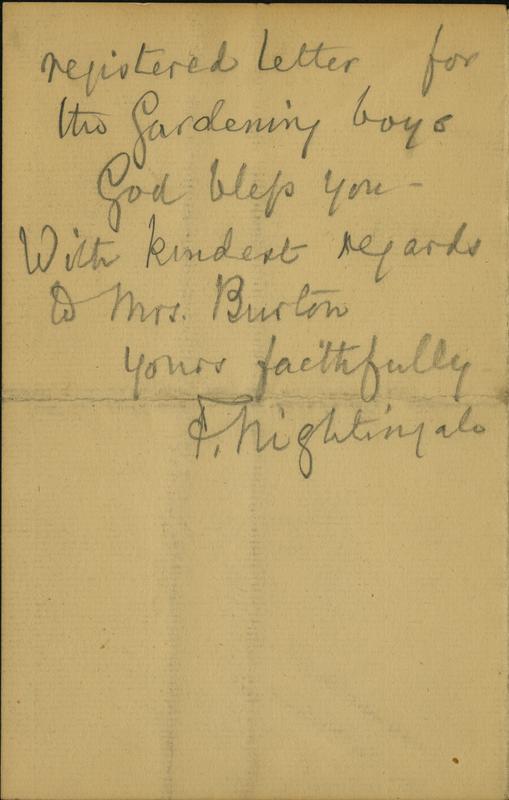 registered letter for
the Gardening boys
God bless you -
With kindest regards
to Mrs. Burton
yours faithfully
F. Nightingale